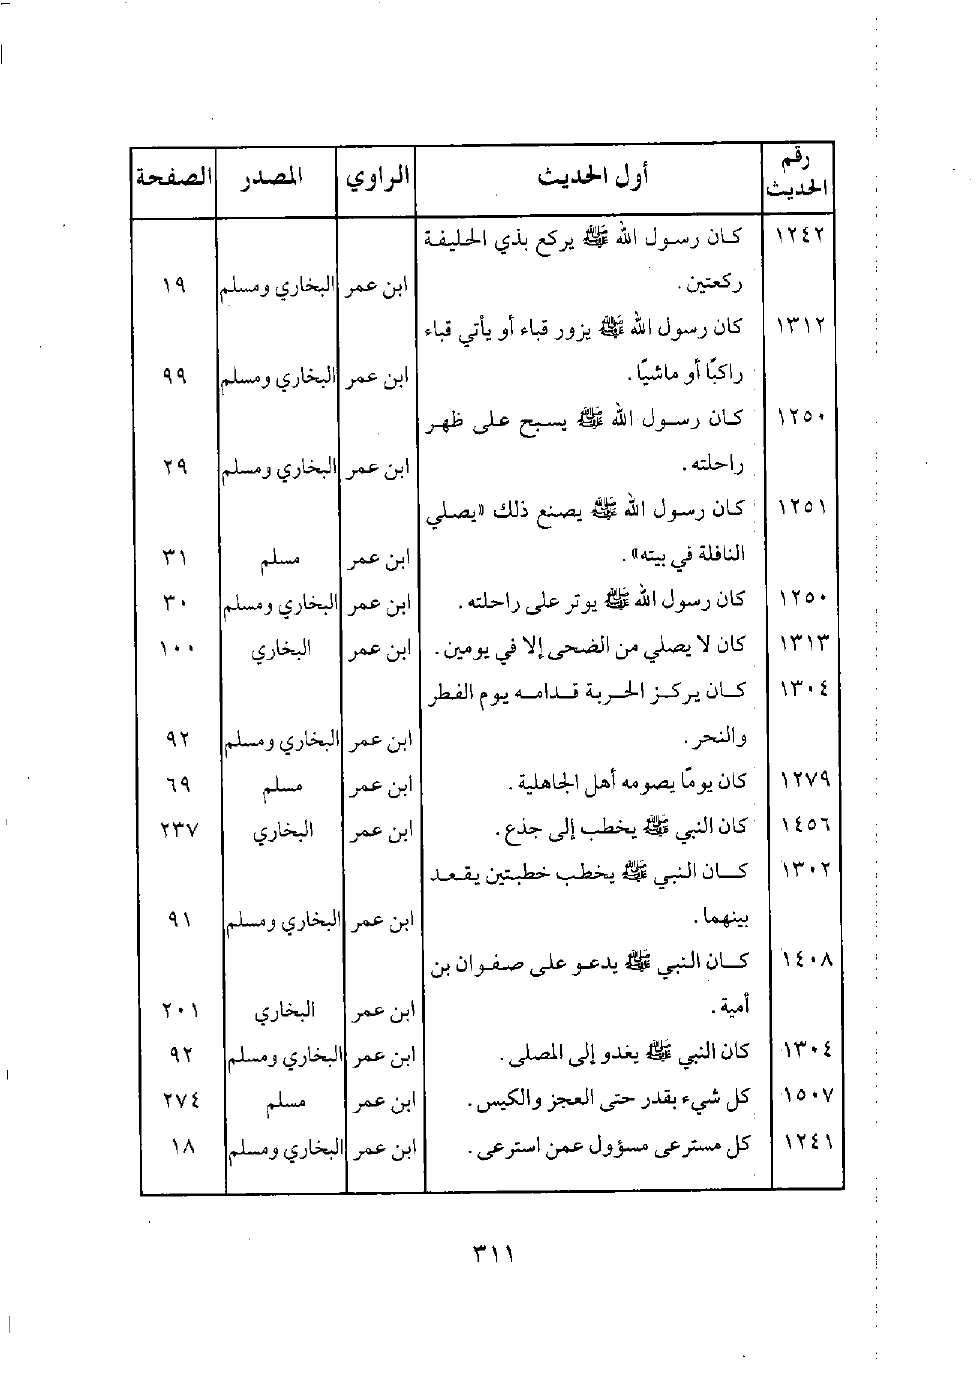 رقم الحديث	أول الحديث	الراوي	المصدر	الصفحة
١٢٤٢	كان رسول الله ﷺ يركع بذي الحليفة
ركعتين.	ابن عمر	البخاري ومسلم	١٩
١٣١٢	كان رسول الله ﷺ يزور قباء أو يأتي قباء
راكبًا أو ماشيًا.	ابن عمر	البخاري ومسلم	٩٩
١٢٥٠	كان رسول الله ﷺ يسبح على ظهر
راحلته.	ابن عمر	البخاري ومسلم	٢٩
١٢٥١	كان رسول الله ﷺ يصنع ذلك «يصلي
النافلة في بيته».	ابن عمر	مسلم	٣١
١٢٥٠	كان رسول الله ﷺ يوتر على راحلته.	ابن عمر	البخاري ومسلم	٣٠
١٣١٣	كان لا يصلي من الضحى إلا في يومين.	ابن عمر	البخاري	١٠٠
١٣٠٤	كان يركز الحربة قدامه يوم الفطر
والنحر.	ابن عمر	البخاري ومسلم	٩٢
١٢٧٩	كان يومًا يصومه أهل الجاهلية.	ابن عمر	مسلم	٦٩
١٤٥٦	كان النبي ﷺ يخطب إلى جذع.	ابن عمر	البخاري	٢٣٧
١٣٠٢	كان النبي ﷺ يخطب خطبتين يقعد
بينهما.	ابن عمر	البخاري ومسلم	٩١
١٤٠٨	كان النبي ﷺ يدعو على صفوان بن
أمية.	ابن عمر	البخاري	٢٠١
١٣٠٤	كان النبي ﷺ يغدو إلى المصلى.	ابن عمر	البخاري ومسلم	٩٢
١٥٠٧	كل شيء بقدر حتى العجز والكيس.	ابن عمر	مسلم	٢٧٤
١٢٤١	كل مسترعى مسؤول عمن استرعى.	ابن عمر	البخاري ومسلم	١٨
٣١١